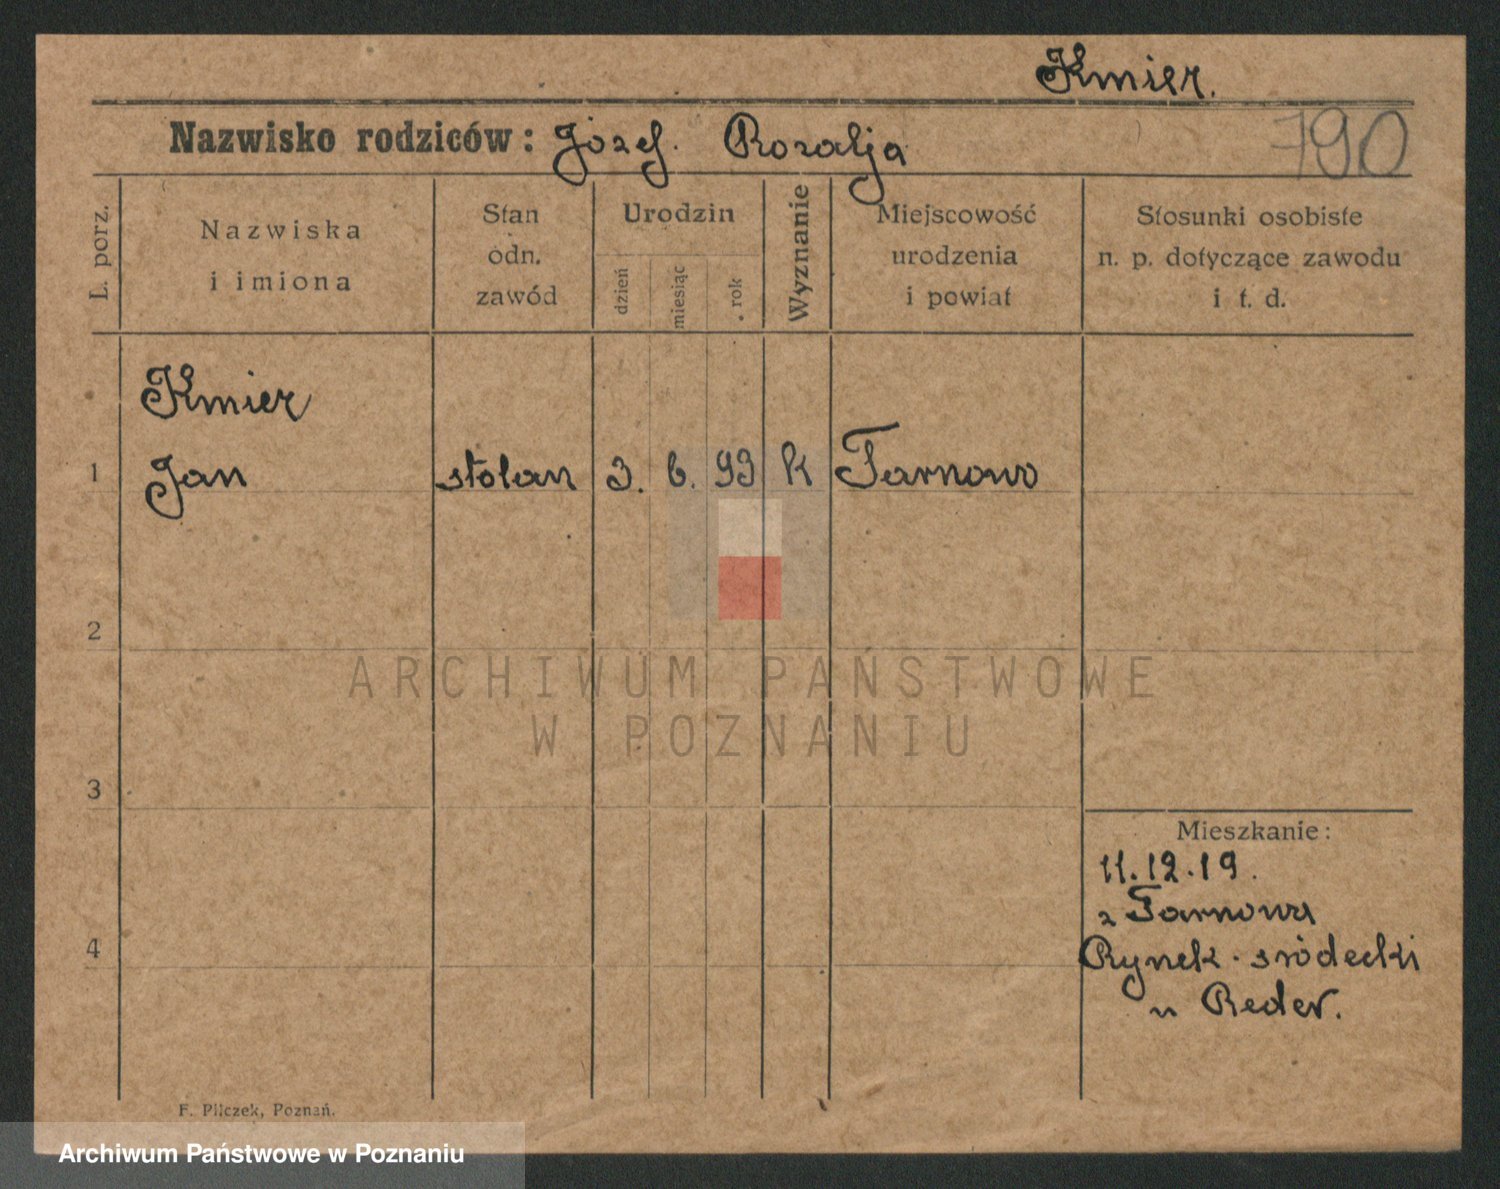 Kmier.
Nazwisko rodziców: Józef. Rozalja
790
L. porz.
Nazwiska
i imiona
Stan
odn.
zawód
Urodzin
dzień
miesiąc
rok
Wyznanie
Miejscowość
urodzenia
i powiat
Stosunki osobiste
n. p. dotyczące zawodu
i t. d.
Kmier
1 Jan stolarz 3. 6. 93 k Tarnowo
2
ARCHIWUM PAŃSTWOWE
W POZNANIU
3
Mieszkanie:
11.12.19.
z Tarnowa
4
Rynek śródecki
u Reder.
F. Pilczek, Poznań.
Archiwum Państwowe w Poznaniu